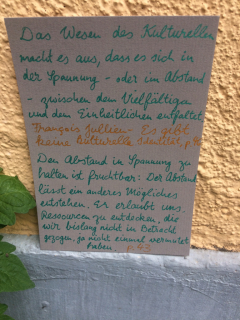 Das Wesen des Kulturellen
macht es aus, dass es sich in
der Spannung - oder im Abstand
- zwischen dem Vielfältigen
und dem Einheitlichen entfaltet
François Jullien - Es gibt
keine kulturelle Identität, p.
Den Abstand in Spannung zu
halten ist fruchtbar: Der Abstand
lässt ein anderes Mögliches
entstehen. Er erlaubt uns,
Ressourcen zu entdecken, die
wir bislang nicht in Betracht
gezogen, ja nicht einmal vermutet
haben. p. 43